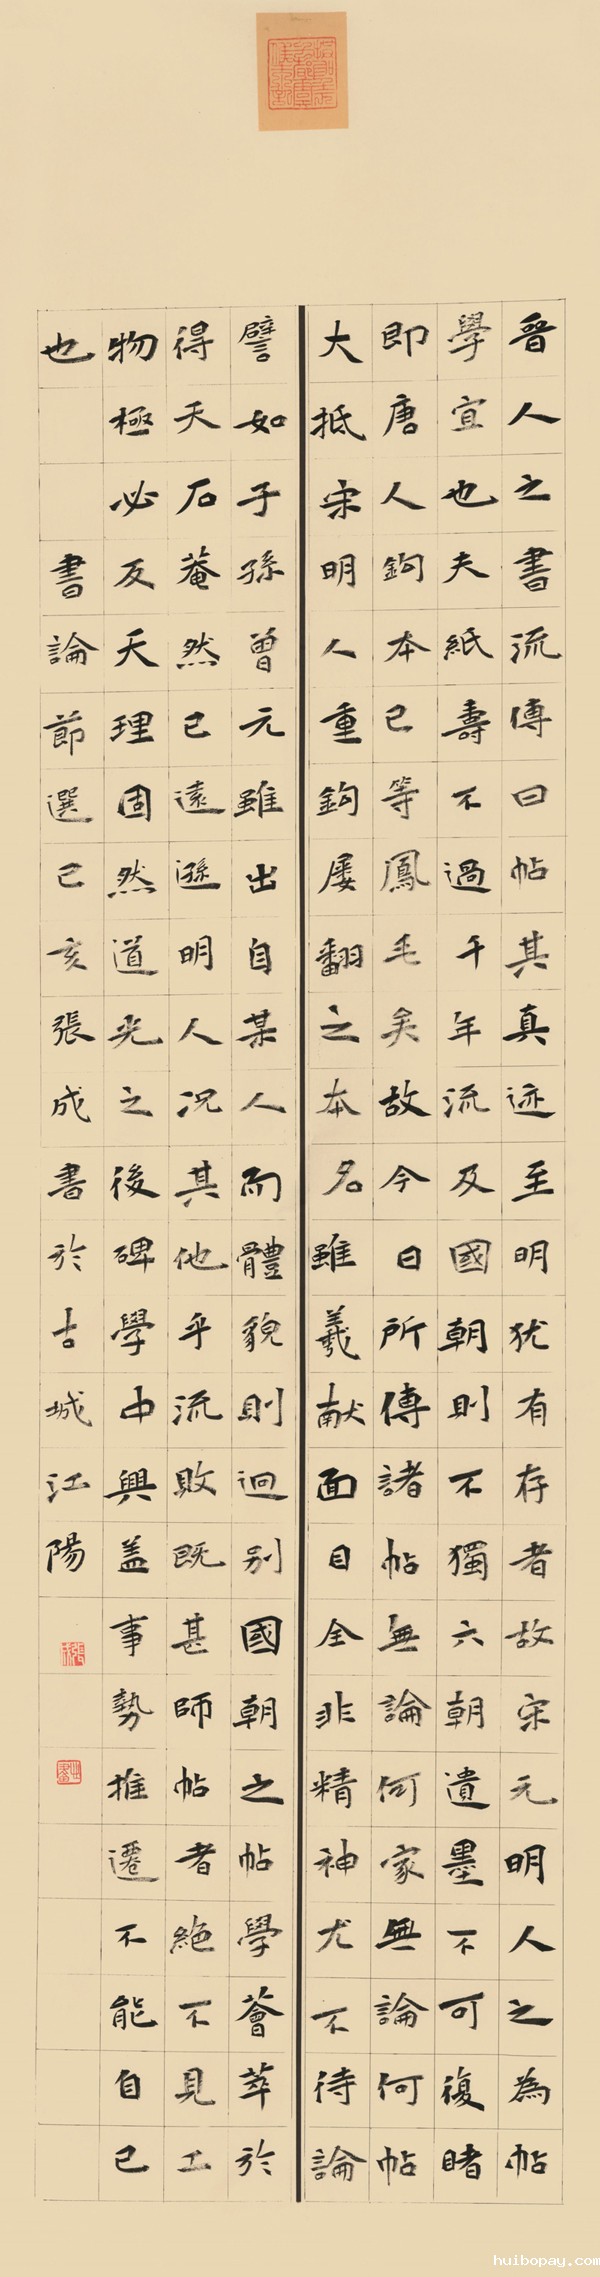 晉人之書流傳曰帖其真迹至明犹有存者故宋元明人之為帖
學宜也夫紙壽不過千年流及國朝則不獨六朝遺墨不可復睹
即唐人鉤本已等鳳毛矣故今日所傳諸帖無論何家無論何帖
大抵宋明人重鉤屡翻之本名雖羲献面目全非精神尤不待論
譬如子孫曾元雖出自某人而體貌則迥别國朝之帖學薈萃於
得天石菴然已遠遜明人况其他乎流敗既甚師帖者絕不見工
物極必反天理固然道光之後碑學中興盖事勢推遷不能自已
也 書論節選己亥張成書於古城江陽
huibopay.com